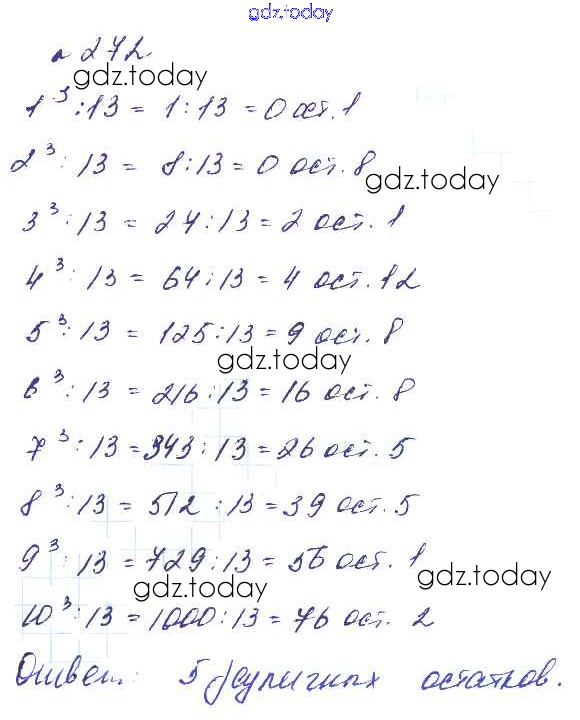 gdz.today
№ 272
gdz.today
1³ : 13 = 1 : 13 = 0 ост. 1
2³ : 13 = 8 : 13 = 0 ост. 8
gdz.today
3³ : 13 = 27 : 13 = 2 ост. 1
4³ : 13 = 64 : 13 = 4 ост. 12
5³ : 13 = 125 : 13 = 9 ост. 8
gdz.today
6³ : 13 = 216 : 13 = 16 ост. 8
7³ : 13 = 343 : 13 = 26 ост. 5
8³ : 13 = 512 : 13 = 39 ост. 5
9³ : 13 = 729 : 13 = 56 ост. 1
gdz.today
gdz.today
10³ : 13 = 1000 : 13 = 76 ост. 2
Ответ: 5 остатков.